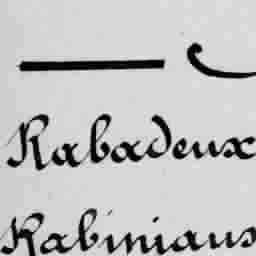 Rabadeux
Rabinians